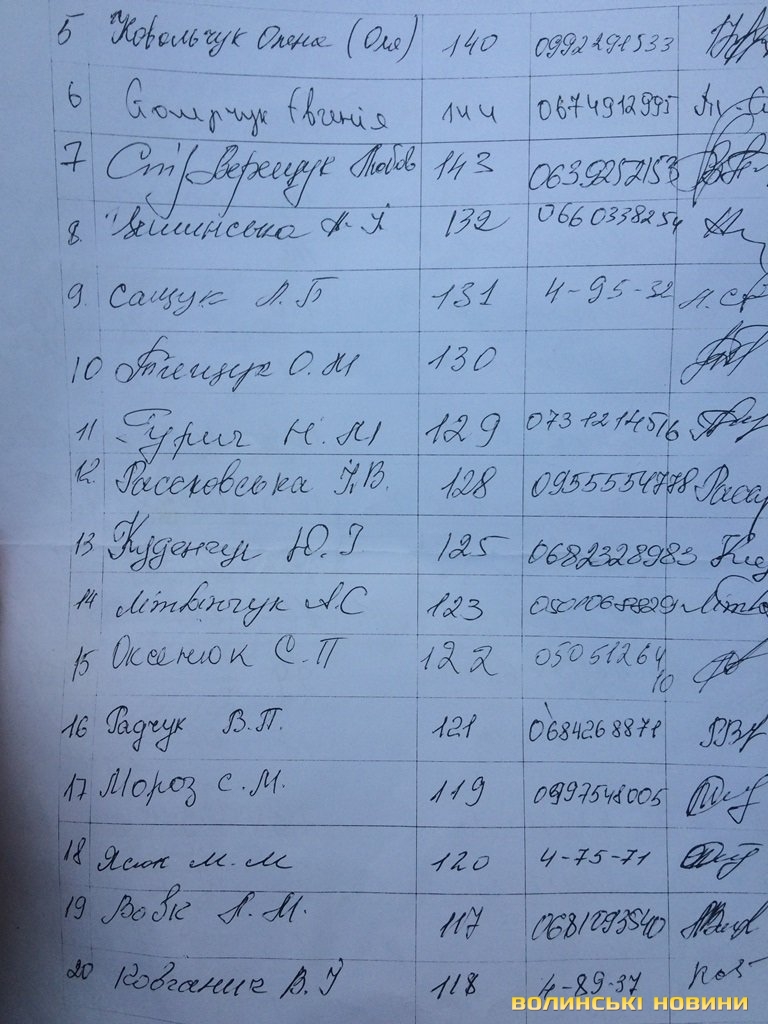 5 Ковальчук Олена (Оля) 140 0992291533
6 Євгенія 144 0674912995
7 Верещук Любов 143 0639252153
8. 132 0660338254
9. Сащук Л. П 131 4-95-32
10 О. М 130
11 Гурич Н. М 129 0731214516
12. Рассховська Н.В. 128 0955554778
13 Ю. І 125 0682328983
14 Літвінчук А.С 123
15 Оксенюк С.П 122 05051264
10
16 Радчук В.П. 121 0684268871
17 Мороз С.М. 119 0997548005
18 Ясюк М.М 120 4-75-71
19 Вовк Л.М. 117 0681093540
20 Ковганич В.І 118 4-89-37
ВОЛИНСЬКІ НОВИНИ